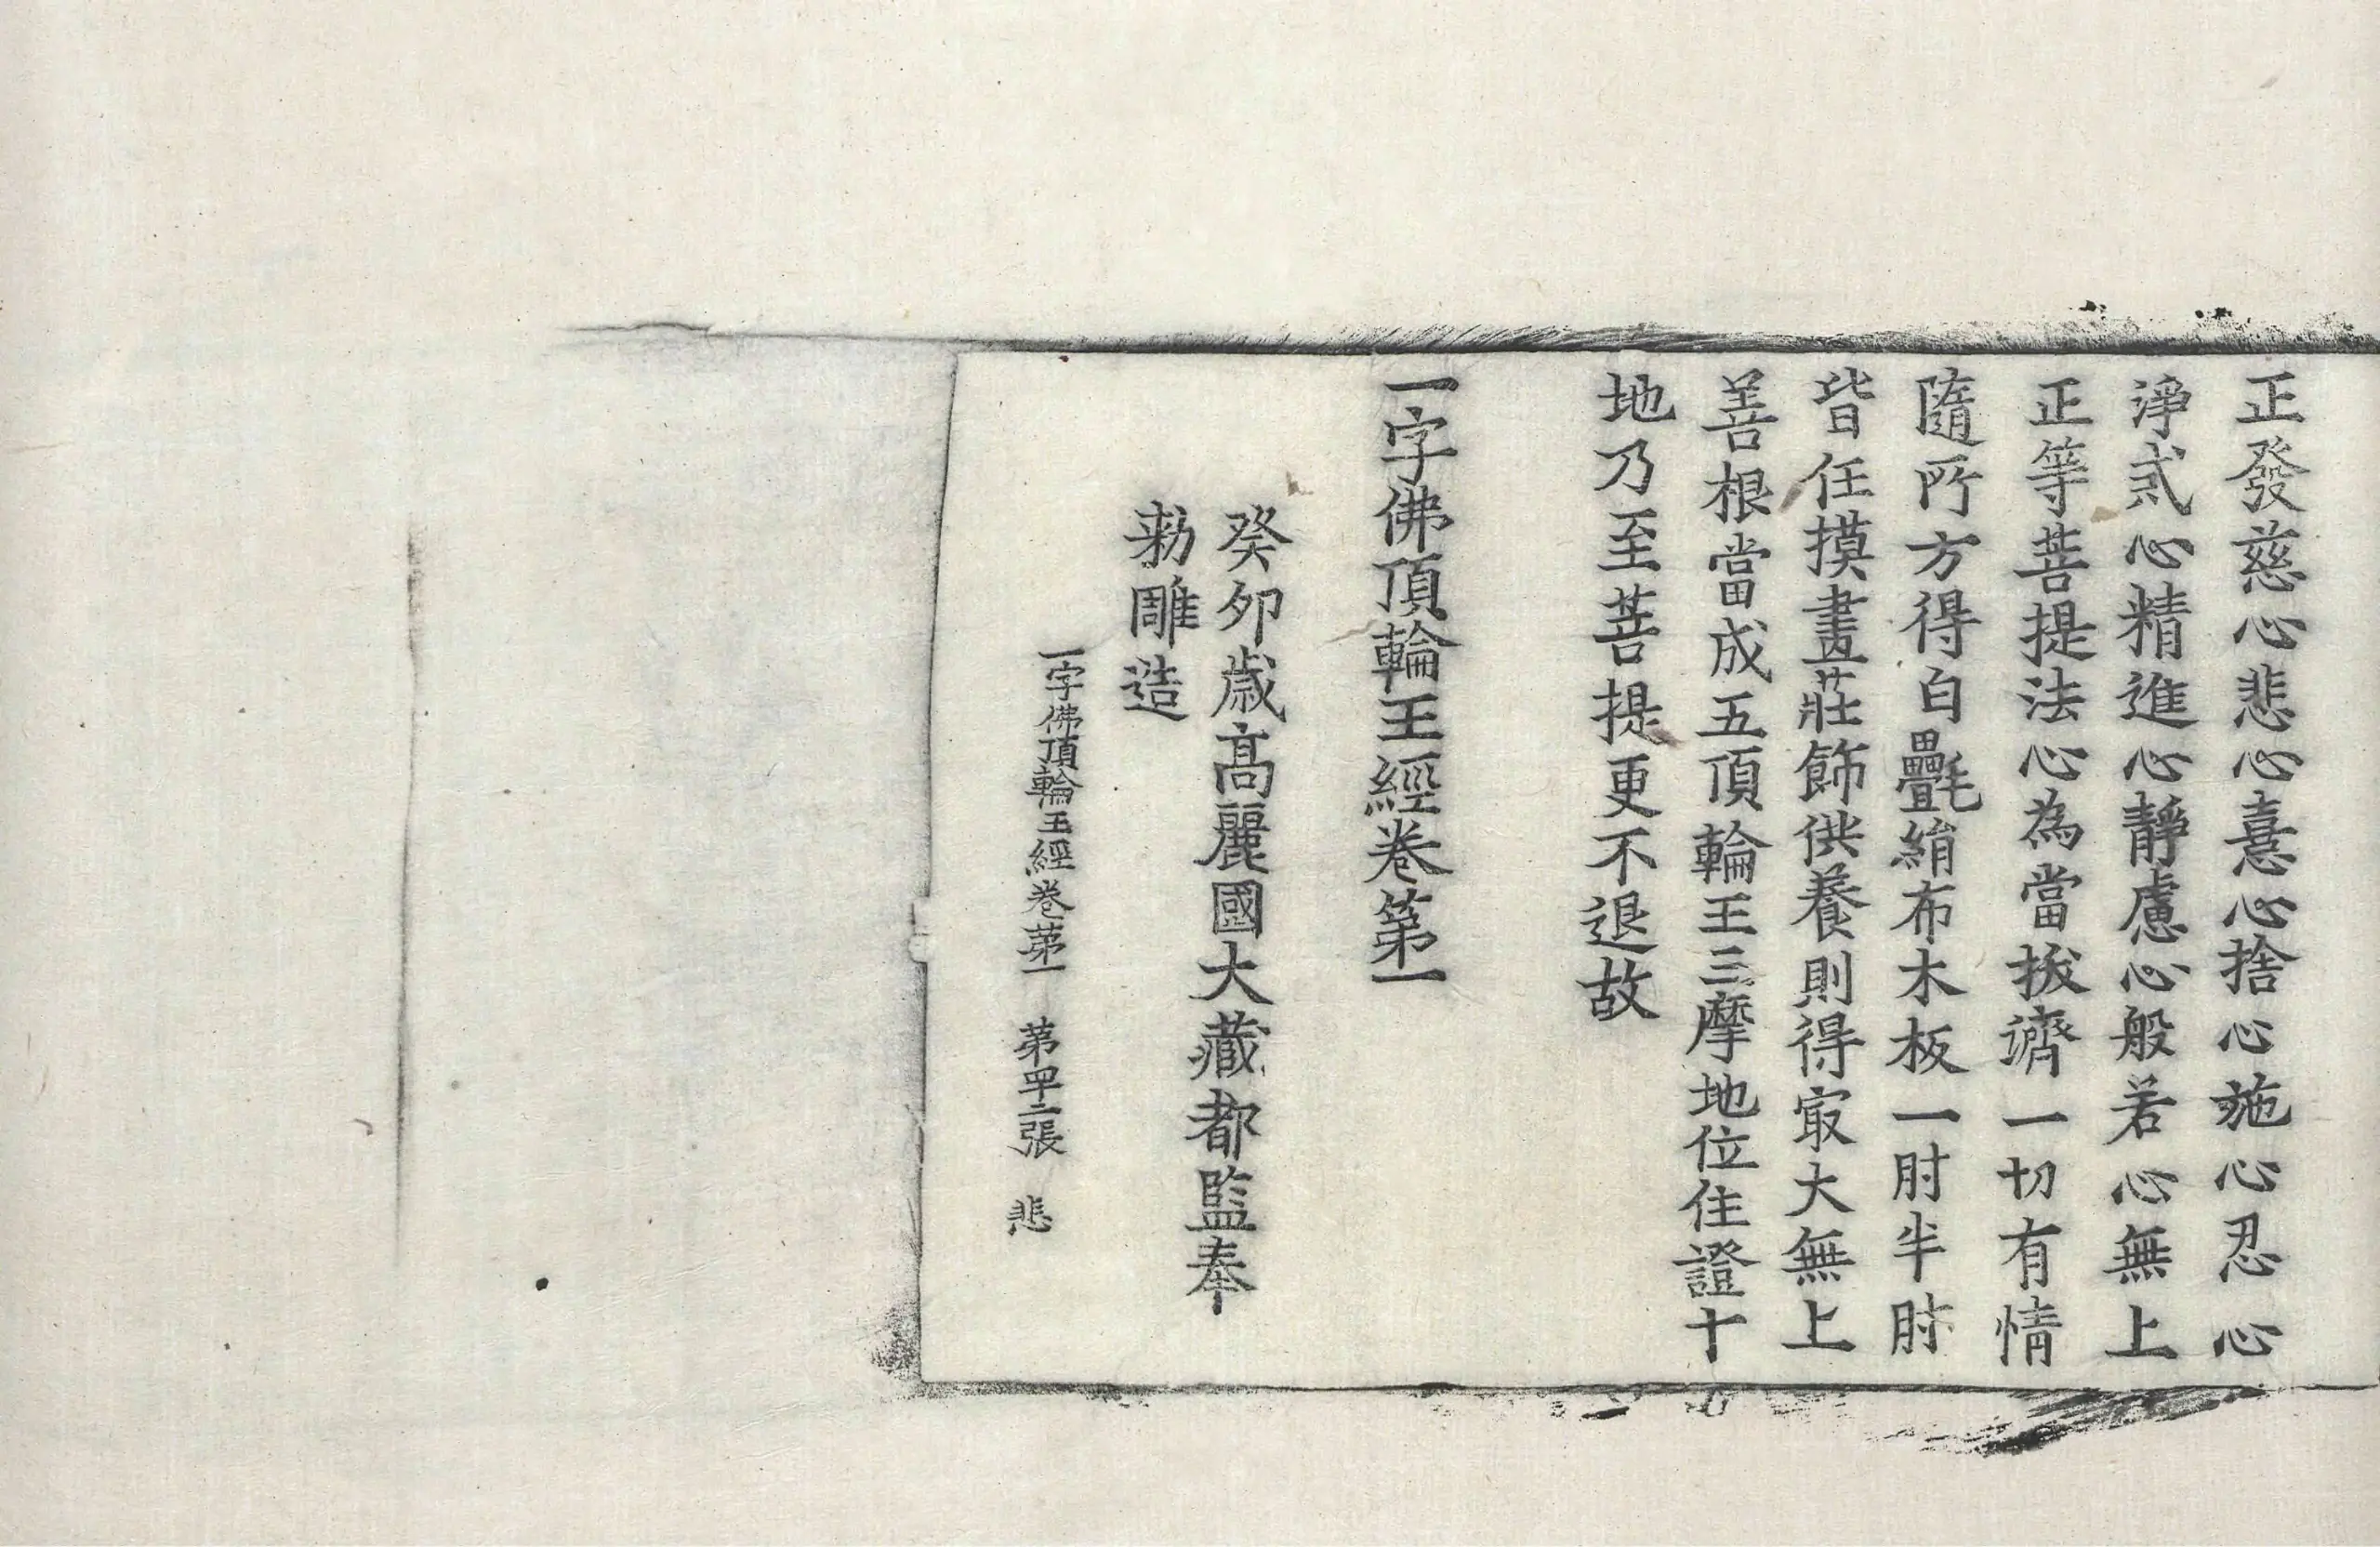 正發慈心悲心憙心捨心施心忍心
淨貳心精進心靜慮心般若心無上
正等菩提法心為當拔濟一切有情
隨所方得白氎絹布木板一肘半肘
皆任摸畫莊飾供養則得冣大無上
善根當成五頂輪王三摩地位住證十
地乃至菩提更不退故
一字佛頂輪王經卷第一
癸卯歲高麗國大藏都監奉
勑雕造
一字佛頂輪王經卷第一 第四十二張 悲